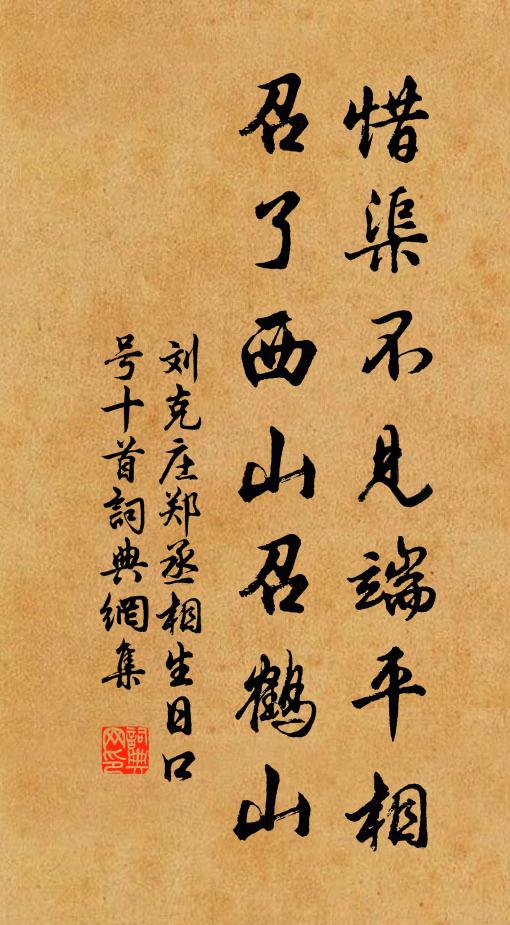 惜渠不见端平相
召了西山召鹤山
刘克庄郑丞相生日口
号十首詞典網集
詞典网印